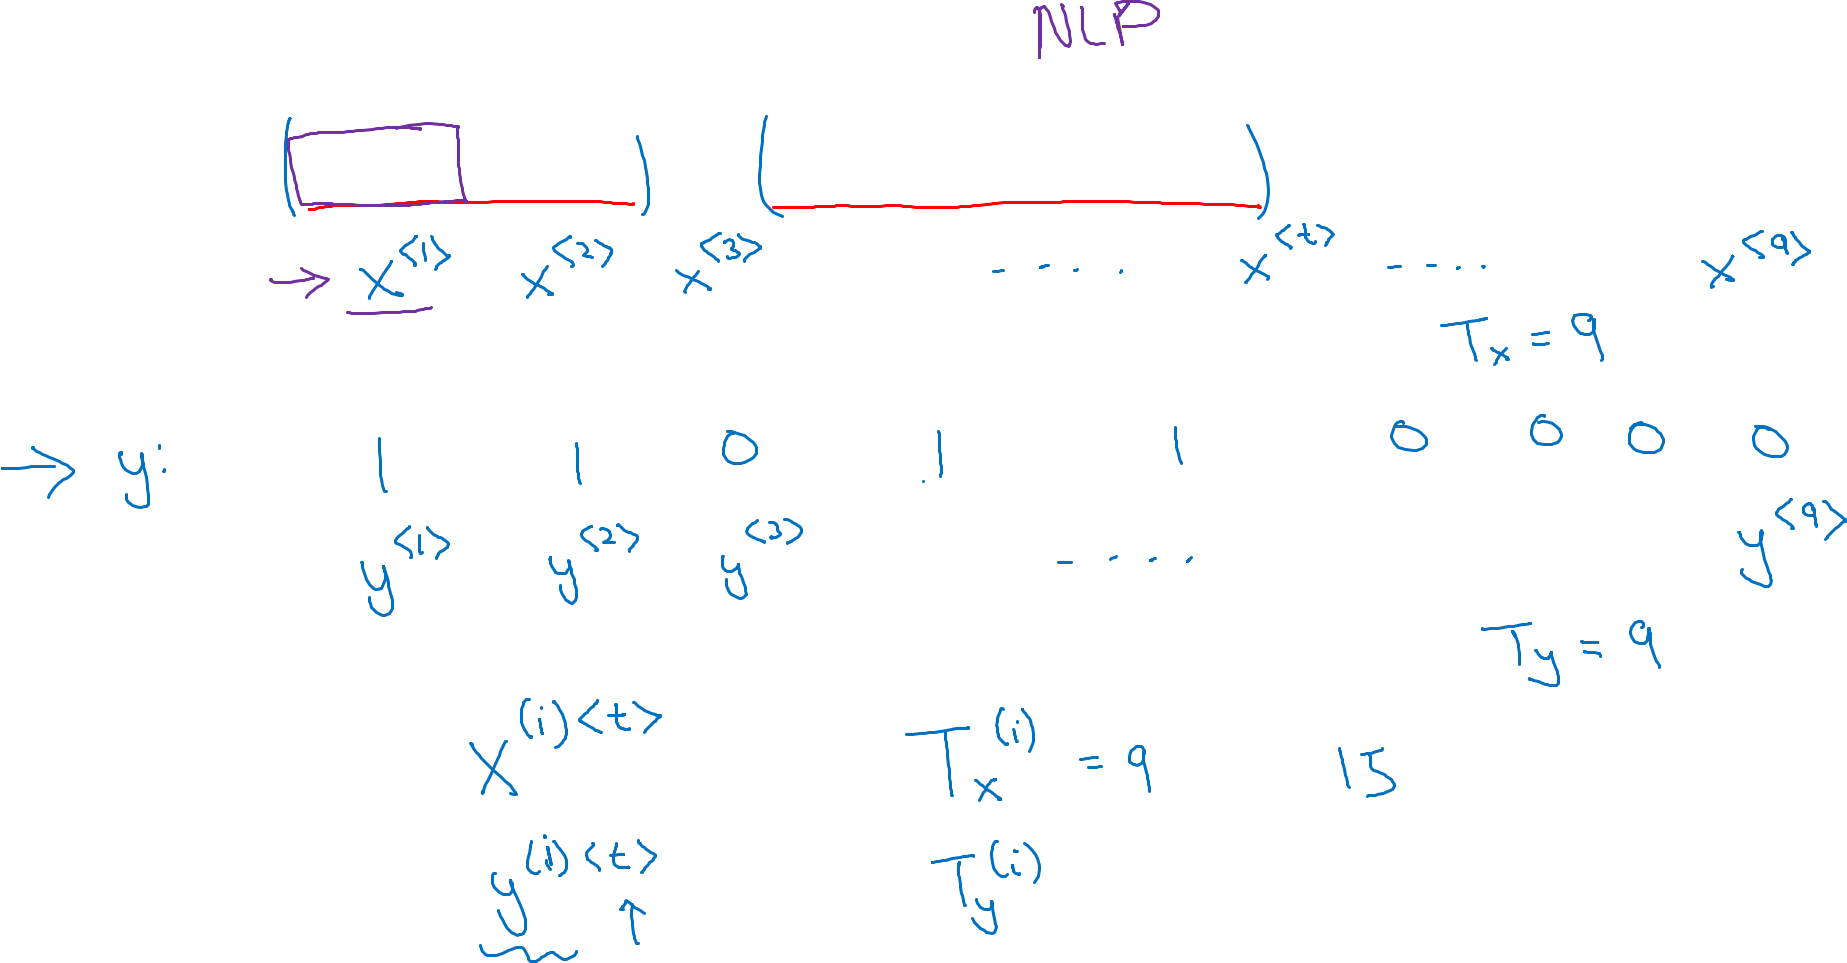 NLP
x<1> x<2> x<3> - - . . . x<t> - - . . x<9>
Tx = 9
→ y: 1 1 0 1 1 0 0 0 0
y<1> y<2> y<3> - . . . y<9>
Ty = 9
X(i)<t> Tx(i) = 9 15
y(i)<t> Ty(i)